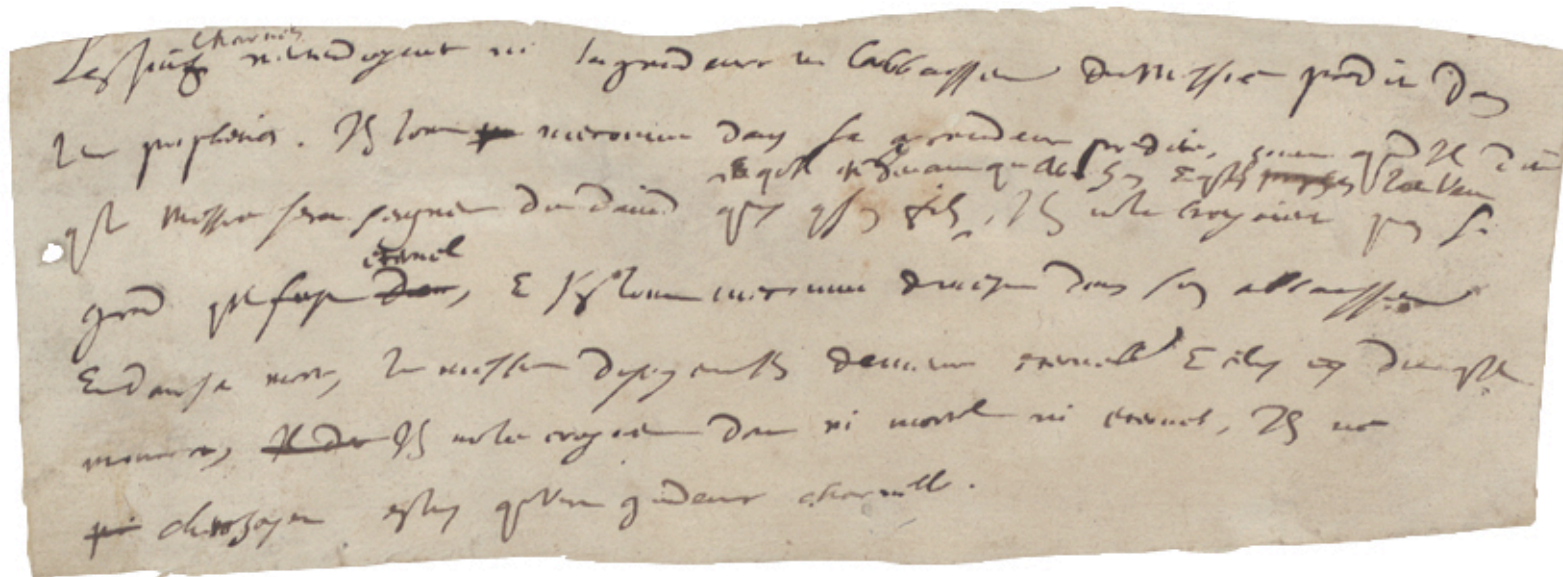 Les juifs charnels n'entendoyent ni la grandeur ni l'abbaissement du Messie predit dans
leurs propheties. Ils l'ont mesconnu dans sa grandeur predite, comme quand il dit
qu'il est devant qu'Abraham et qu'il l'a veu
que le Messie sera seigneur de david quoyque son fils, Ils ne le croyoient pas si
grand qu'il fust eternel, Et ils l'ont mesconnu de mesme dans son abbaissement
Et dans sa mort, le messie disoyent ils demeure eternellement Et celuy cy dit qu'il
mourra, Ils ne le croyoient donc ni mortel ni eternel, Ils ne
cherchoyent en luy qu'une grandeur charnelle.